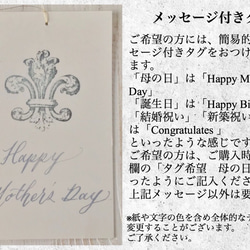 メッセージ付きタ
ご希望の方には、簡易的
セージ付きタグをおつけ
ます。
「母の日」は「Happy M
Day」
「誕生日」は「Happy Bi
「結婚祝い」「新築祝い
は「Congratulates 」
といったような感じです
ご希望の方は、ご購入時
欄の「タグ希望 母の日
ったようにご記入くださ
上記メッセージ以外は要
※紙や文字の色を含め全体的な
変更することがございます。
ご了承ください。
Happy
Mothers Day